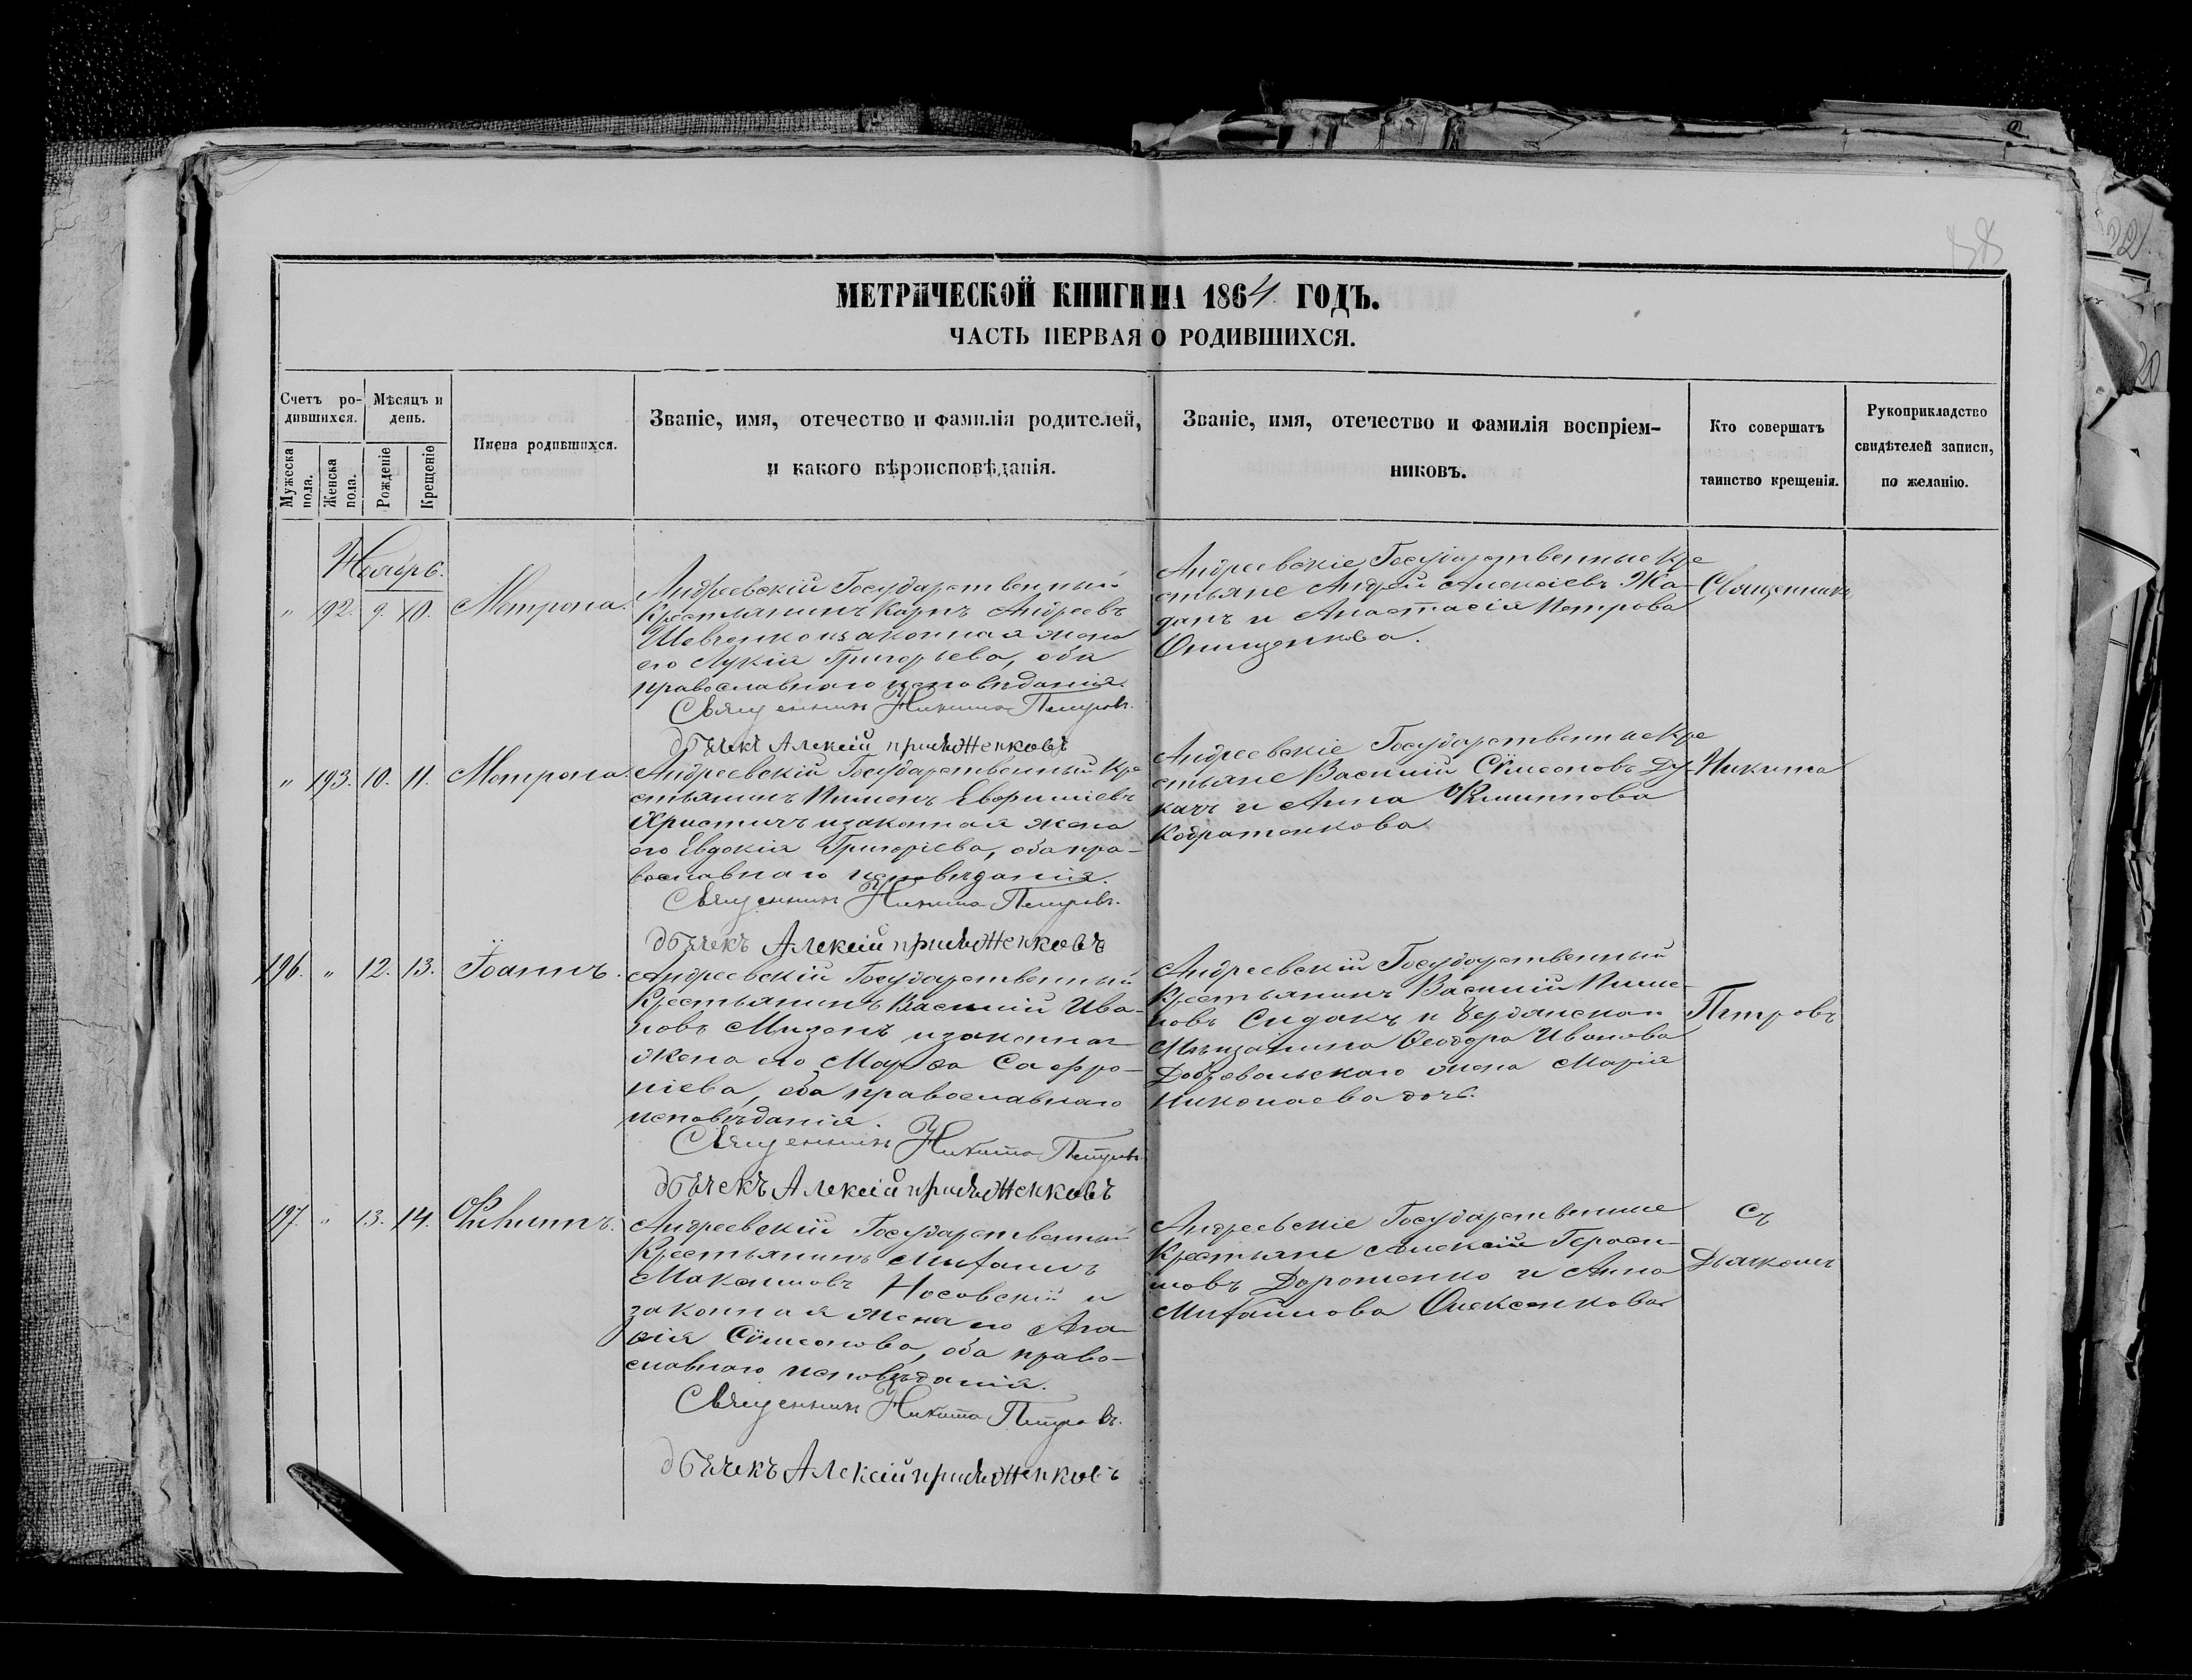 88
22
20
МЕТРИЧЕСКОЙ КНИГИ НА 1864 ГОДЪ.
ЧАСТЬ ПЕРВАЯ О РОДИВШИХСЯ.
Счетъ ро-
дившихся.
Мѣсяцъ и
день.
Мужеска
пола.
Женска
пола.
Рожденіе
Крещеніе
Имена родившихся.
Званіе, имя, отечество и фамилія родителей,
и какого вѣроисповѣданія.
Званіе, имя, отечество и фамилія воспріем-
никовъ.
Кто совершатъ
таинство крещенія.
Рукоприкладство
свидѣтелей записи,
по желанію.
Ноябрь.
" 192. 9. 10. Матрона.
Андреевскій Государственный
Крестьянинъ Карпъ Андреевъ
Шевченко и законная жена
его Лукія Григорьева, оба
православнаго исповѣданія.
Священникъ Никита Петровъ.
дьячекъ Алексій
Андреевскіе Государственные Кре
стьяне Андрей Алексіевъ Жа-
данъ и Анастасія Петрова
Онищенкова.
Священникъ
" 193. 10. 11. Матрона.
Андреевскій Государственный Кре
стьянинъ Пименъ Евфиміевъ
Христичъ и законная жена
его Евдокія Григоріева, оба пра-
вославнаго исповѣданія.
Священникъ Никита Петровъ.
дьячекъ Алексій
Андреевскіе Государственные Кре
стьяне Василій Сѵмеоновъ Ду-
качъ и Анна Филиппова
Кодратенкова
Никита
196. " 12. 13. Іоаннъ.
Андреевскій Государственный
Крестьянинъ Василій Ива-
новъ Мизенъ и законная
жена его Марѳа Софро-
ніева, оба православнаго
исповѣданія.
Священникъ Никита Петровъ
дьячекъ Алексій
Андреевскій Государственный
Крестьянинъ Василій Пиме-
новъ Сидакъ и бердянскаго
Мѣщанина Ѳеодора Иванова
Добровольскаго жена Марія
Николаева дочь.
Петровъ
197. " 13. 14. Филиппъ.
Андреевскій Государственный
Крестьянинъ Михаилъ
Максимовъ Носовскій и
законная жена его Ага-
ѳія Сѵмеонова, оба право-
славнаго исповѣданія.
Священникъ Никита Петровъ.
дьячекъ Алексій
Андреевскіе Государственные
Крестьяне Алексій Гераси-
мовъ Дорошенко и Анна
Михаилова Олексенкова
Съ
Дьячкомъ